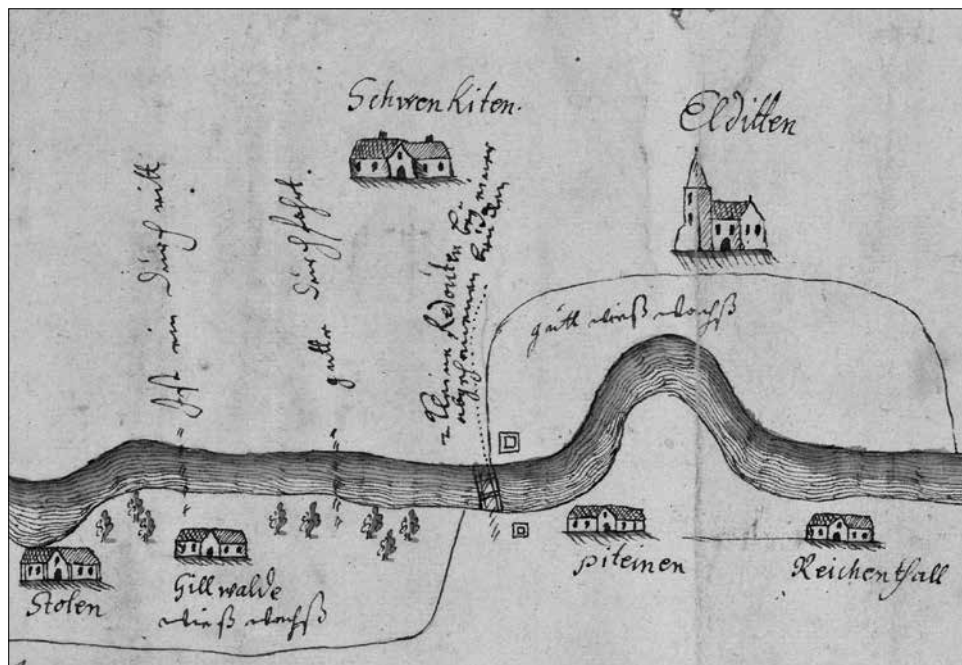 Schwenkiten.
Elditten
Ist ein durch ritt
gutter durchfahrt.
2 kleine Redouten bey einer
abgeworffenen brücken
gutt wieß wachß
Stolen
Hillwalde
wieß wachß
piteinen
Reichenthall